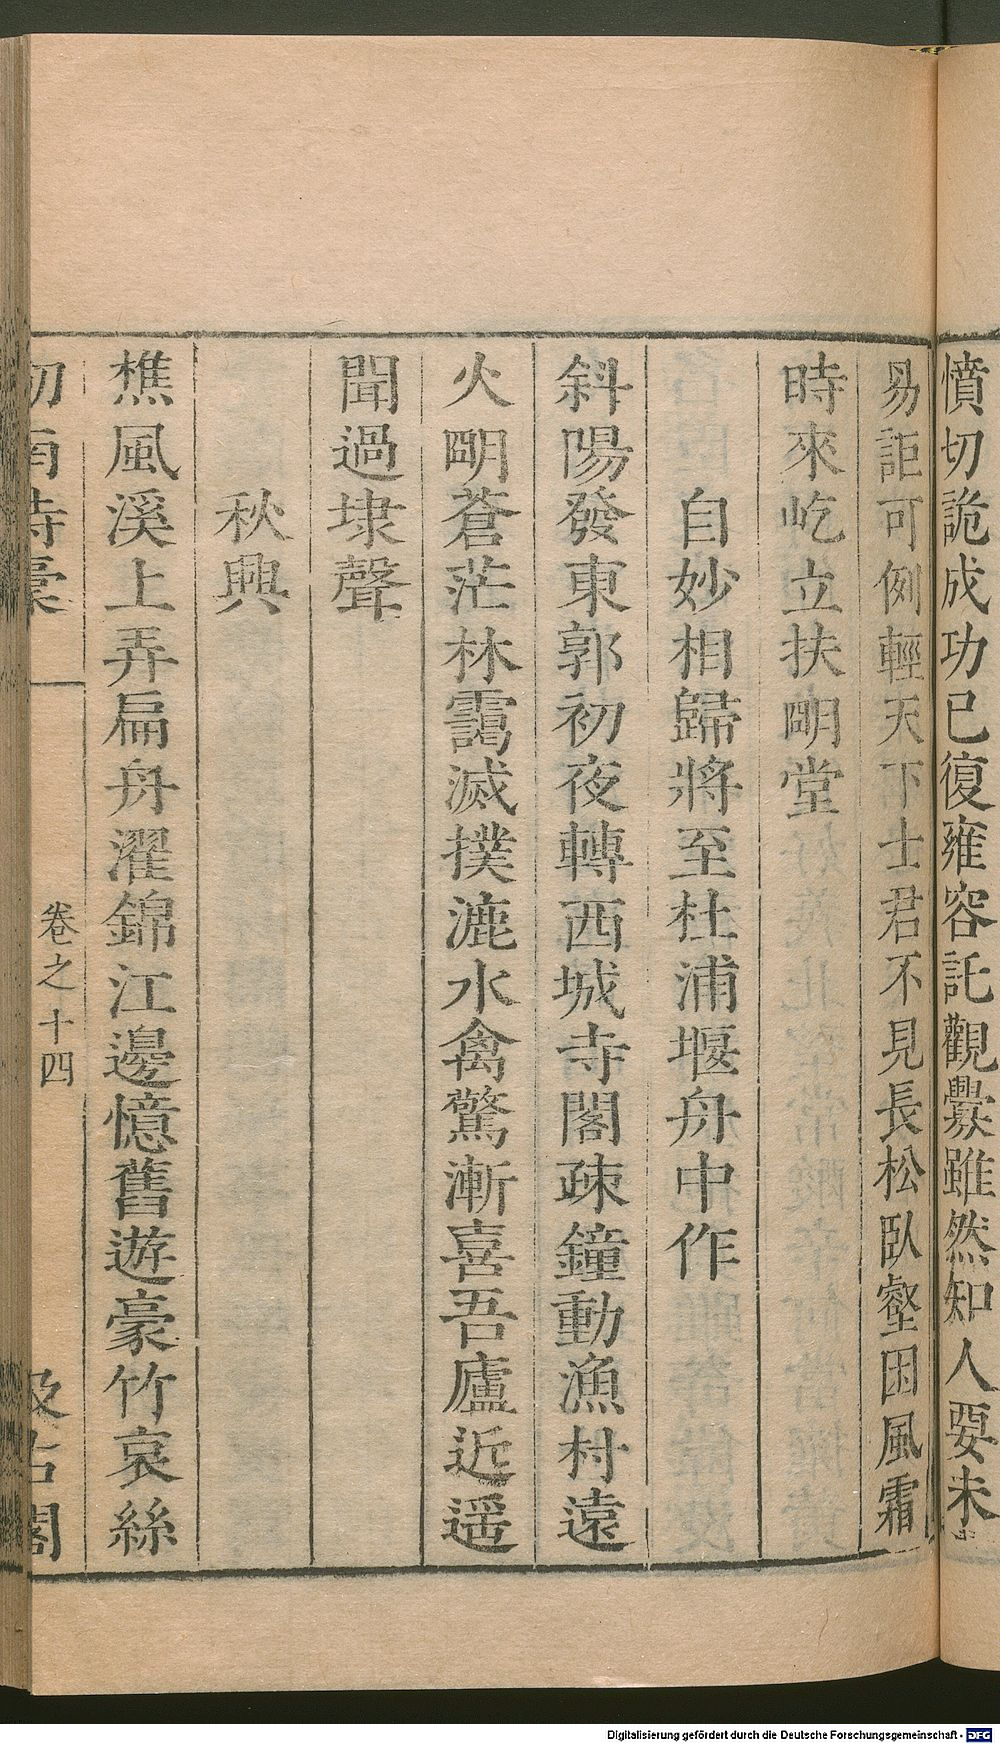 憤切詭成功已復雍容託觀釁雖然知人要未
易詎可例輕天下士君不見長松臥壑困風霜
時來屹立扶明堂
自妙相歸將至杜浦堰舟中作
斜陽發東郭初夜轉西城寺閣疎鐘動漁村遠
火明蒼茫林靄滅撲漉水禽驚漸喜吾廬近遥
聞過埭聲
秋興
樵風溪上弄扁舟濯錦江邊憶舊遊豪竹哀絲
卷之十四
汲古閣
Digitalisierung gefördert durch die Deutsche Forschungsgemeinschaft - DFG